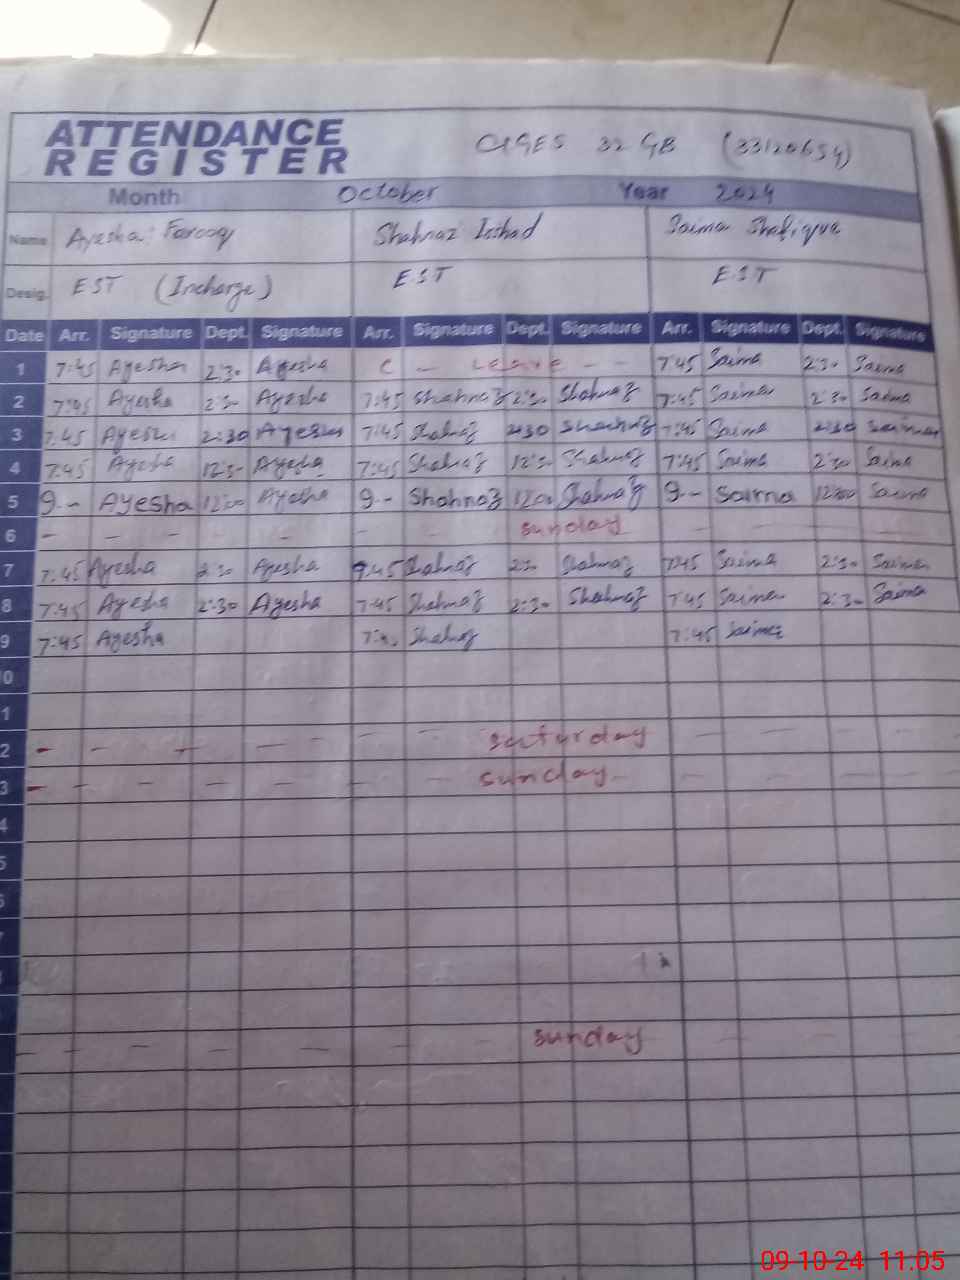 ATTENDANCE
REGISTER
GGES 32 GB (33120654)
Month October Year 2024
Name Ayesha Farooq Shahnaz Irshad Saima Shafique
Desig. EST (Incharge) E.S.T E.S.T
Date Arr. Signature Dept. Signature Arr. Signature Dept. Signature Arr. Signature Dept. Signature
1 7:45 Ayesha 2:30 Ayesha C - Leave - - 7:45 Saima 2:30 Saima
2 7:45 Ayesha 2:30 Ayesha 7:45 Shahnaz 2:30 Shahnaz 7:45 Saima 2:30 Saima
3 7:45 Ayesha 2:30 Ayesha 7:45 Shahnaz 2:30 Shahnaz 7:45 Saima 2:30 Saima
4 7:45 Ayesha 12:30 Ayesha 7:45 Shahnaz 12:30 Shahnaz 7:45 Saima 2:30 Saima
5 9-- Ayesha 12:00 Ayesha 9-- Shahnaz 12:00 Shahnaz 9-- Saima 12:00 Saima
6 - - - - - - - sunday - - - -
7 7:45 Ayesha 2:30 Ayesha 7:45 Shahnaz 2:30 Shahnaz 7:45 Saima 2:30 Saima
8 7:45 Ayesha 2:30 Ayesha 7:45 Shahnaz 2:30 Shahnaz 7:45 Saima 2:30 Saima
9 7:45 Ayesha 7:45 Shahnaz 7:45 Saima
0
1
2 - - - - - - - saturday - - - -
3 - - - - - - - sunday - - - - -
4
5
6
sunday
09-10-24 11.05